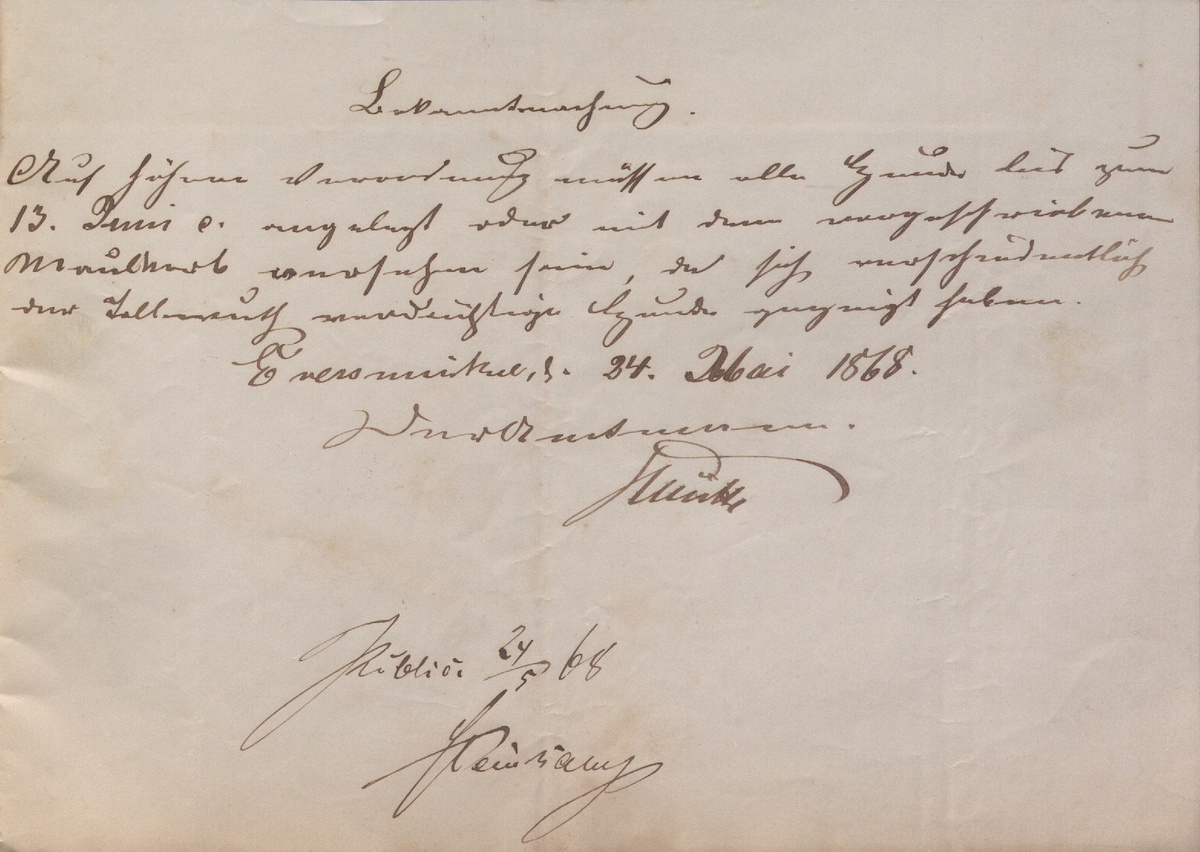 Bekanntmachung.
Auf höhere Verordnung müssen alle Hunde bis zum
13. Juni c. angelegt oder mit dem vorgeschriebenen
Maulkorb versehen sein, da sich verschiedentlich
der Tollwuth verdächtige Hunde gezeigt haben.
Everswinkel, d. 24. Mai 1868.
Der Amtmann.
Public. 24/5 68